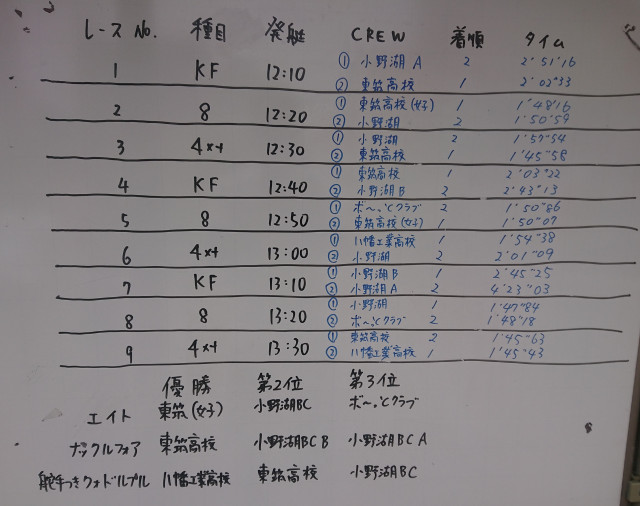 レースNo. 種目 発艇 CREW 着順 タイム
1 KF 12:10 ① 小野湖A 2 2'51"16
② 東筑高校 1 2'02"33
2 8 12:20 ① 東筑高校(女子) 1 1'48"16
② 小野湖 2 1'50"59
3 4x+ 12:30 ① 小野湖 2 1'57"54
② 東筑高校 1 1'45"58
4 KF 12:40 ① 東筑高校 1 2'03"22
② 小野湖B 2 2'43"13
5 8 12:50 ① ボ〜、とクラブ 2 1'50"86
② 東筑高校(女子) 1 1'50"07
6 4x+ 13:00 ① 八幡工業高校 1 1'54"38
② 小野湖 2 2'01"09
7 KF 13:10 ① 小野湖B 1 2'45"25
② 小野湖A 2 4'23"03
8 8 13:20 ① 小野湖 1 1'47"84
② ボ〜、とクラブ 2 1'48"18
9 4x+ 13:30 ① 東筑高校 2 1'45"63
② 八幡工業高校 1 1'45"43
優勝 第2位 第3位
エイト 東筑(女子) 小野湖BC ボ〜、とクラブ
ナックルフォア 東筑高校 小野湖BC B 小野湖BC A
舵手つきクォドルプル 八幡工業高校 東筑高校 小野湖BC